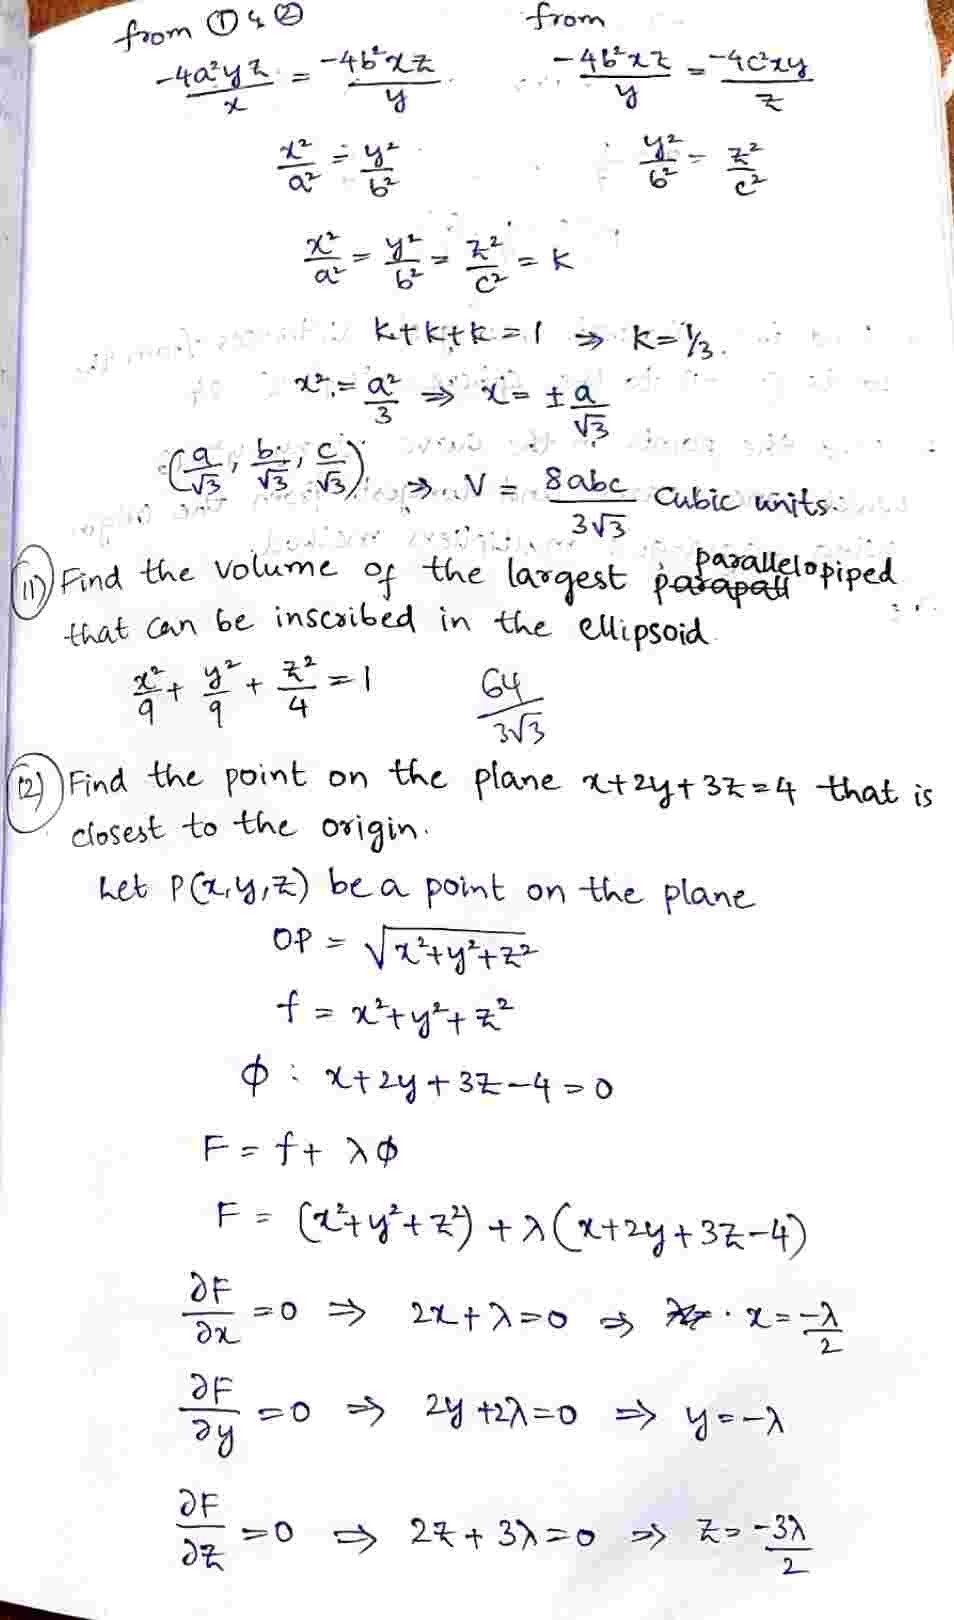 from ① & ② from
-4a²yz/x = -4b²xz/y -4b²xz/y = -4c²xy/z
x²/a² = y²/b² y²/b² = z²/c²
x²/a² = y²/b² = z²/c² = k
k+k+k=1 ⇒ k=1/3.
x² = a²/3 ⇒ x = ± a/√3
(a/√3, b/√3, c/√3) ⇒ V = 8abc/3√3 cubic units.
11) Find the volume of the largest parallelopiped
that can be inscribed in the ellipsoid.
x²/9 + y²/9 + z²/4 = 1 64/3√3
12) Find the point on the plane x+2y+3z=4 that is
closest to the origin.
Let P(x,y,z) be a point on the plane
OP = √x²+y²+z²
f = x²+y²+z²
ϕ : x+2y+3z-4=0
F = f+ λϕ
F = (x²+y²+z²) + λ(x+2y+3z-4)
∂F/∂x =0 ⇒ 2x+λ=0 ⇒ x = -λ/2
∂F/∂y =0 ⇒ 2y+2λ=0 ⇒ y=-λ
∂F/∂z =0 ⇒ 2z+3λ=0 ⇒ z= -3λ/2